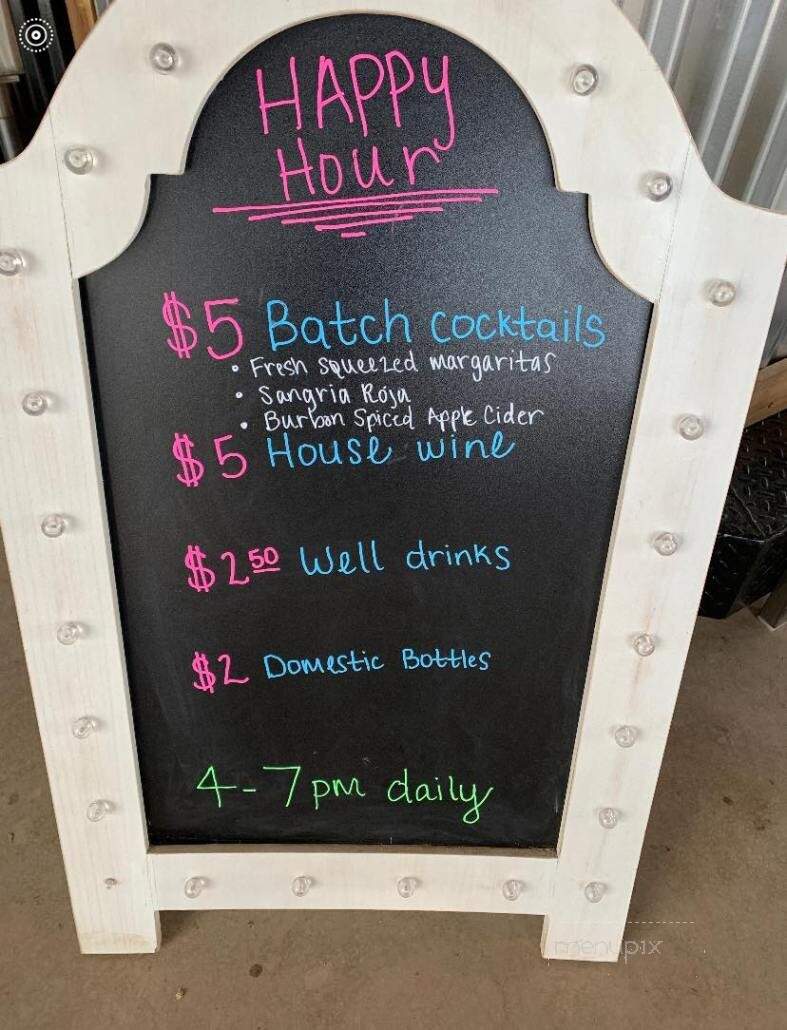 HAPPY
Hour
$5 Batch cocktails
• Fresh squeezed margaritas
• Sangria Roja
• Burbon Spiced Apple Cider
$5 House wine
$2 50 Well drinks
$2 Domestic Bottles
4-7pm daily
menupix